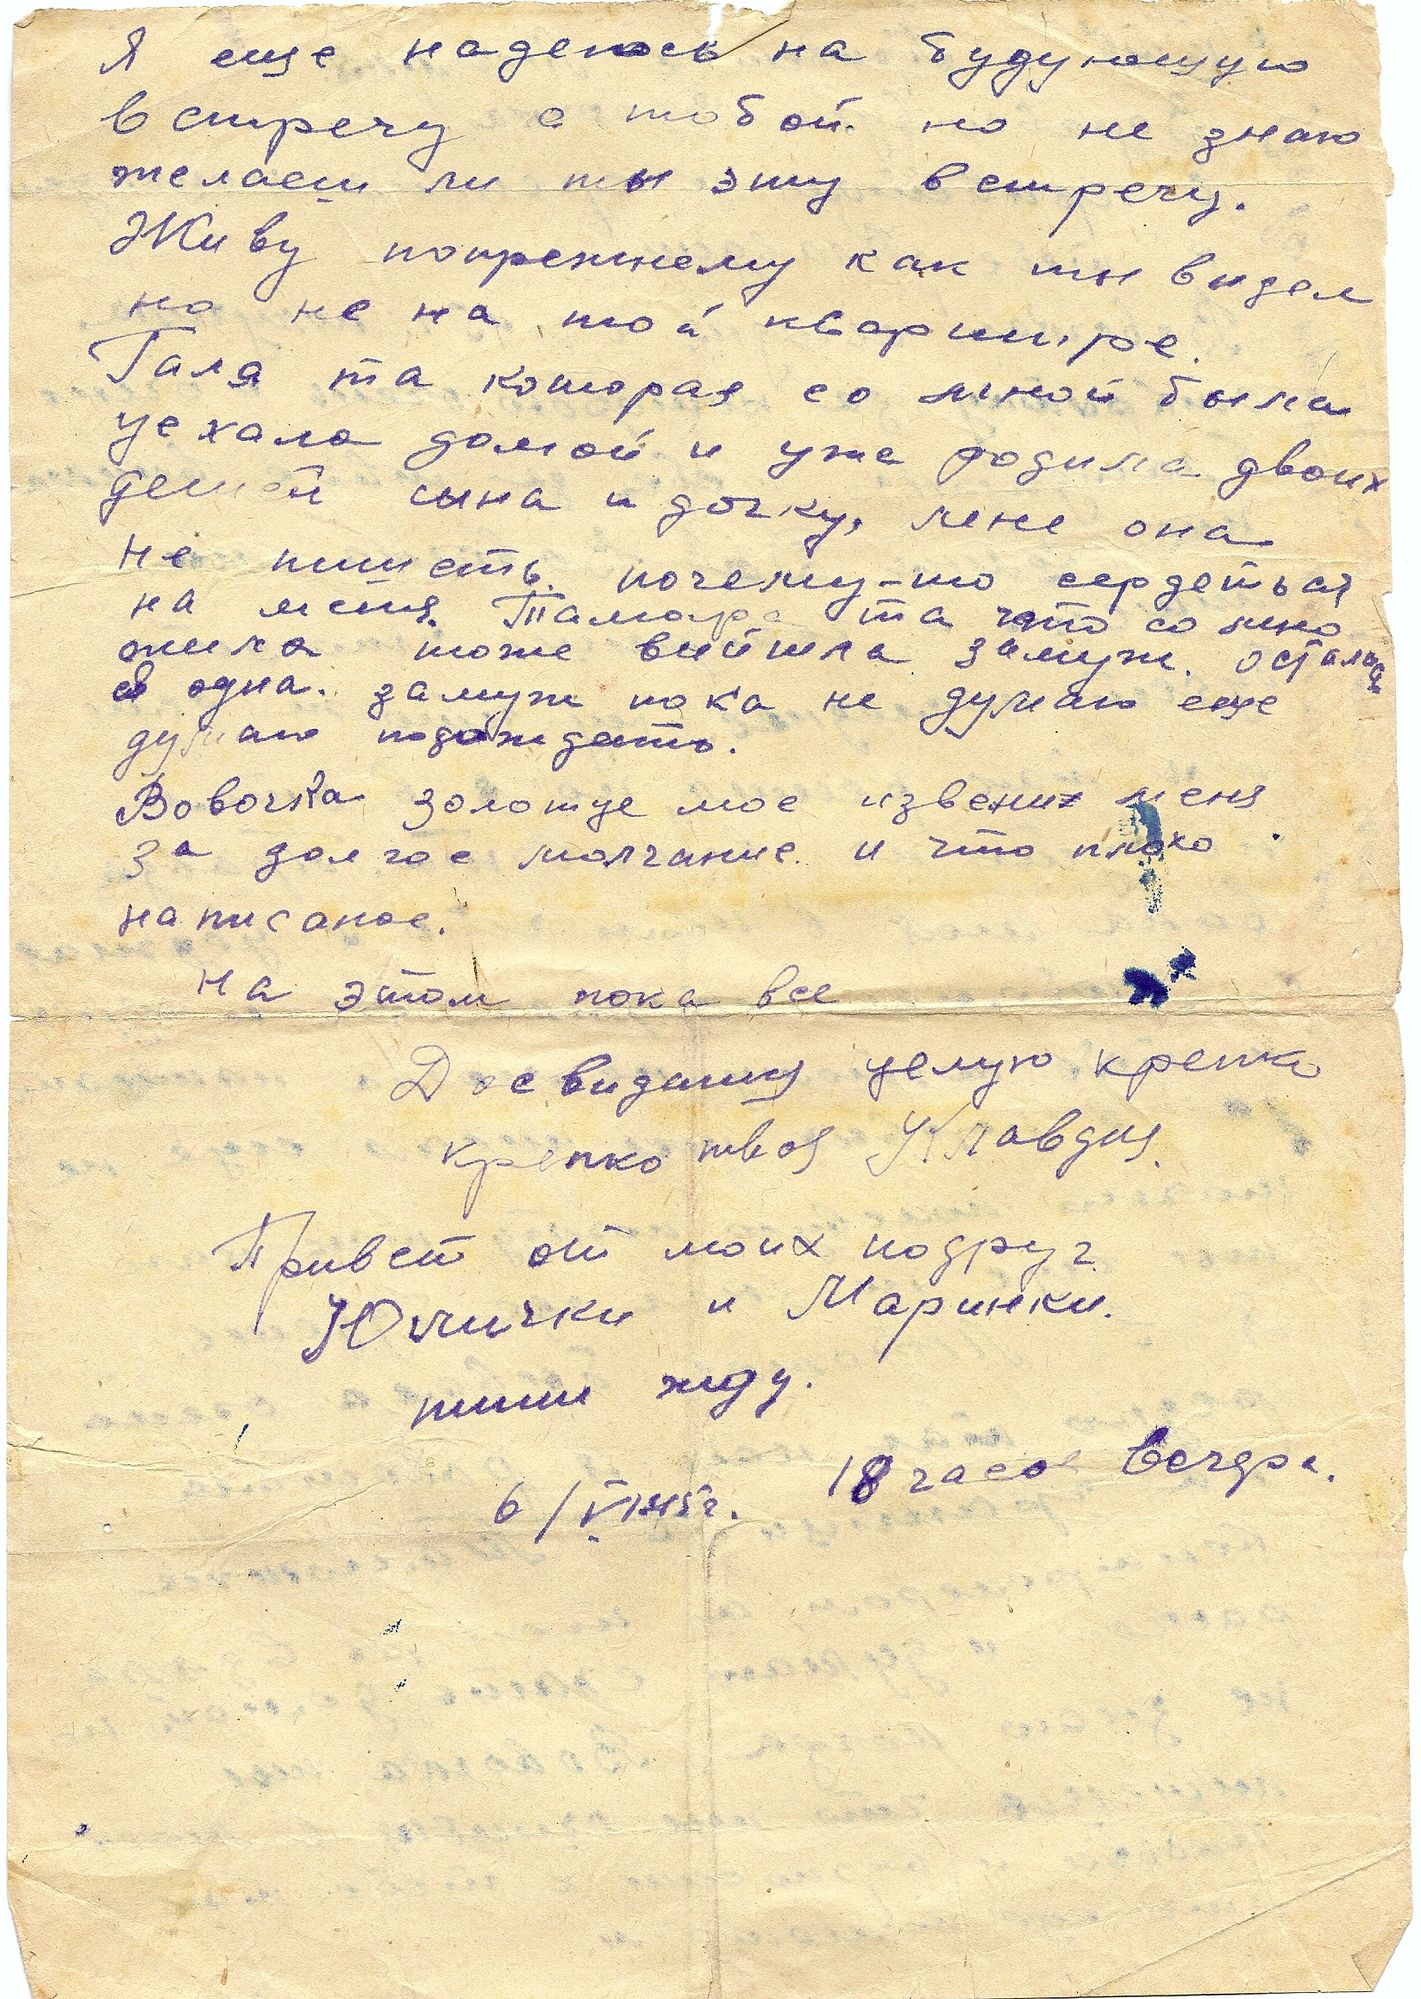 Я еще надеюсь на будующую
встречу с тобой но не знаю
желаеш ли ты эту встречу.
Живу попрежнему как ты видел
но не на той квартире.
Галя та которая со мной была
уехала домой и уже родила двоих
детей сына и дочку, мене она
не пишеть. почему-то сердеться
на меня. Тамара та что со мно
жила тоже вийшла замуж. осталась
я одна. замуж пока не думаю еще
думаю подождать.
Вовочка золотце мое извених меня
за долгое молчание и что плохо
написаное.
На этом пока все
Досвидания целую крепко
крепко твоя Клавдия.
Привет от моих подруг
Юлички и Маринки.
пиши жду.
6/V 18 часов вечера.